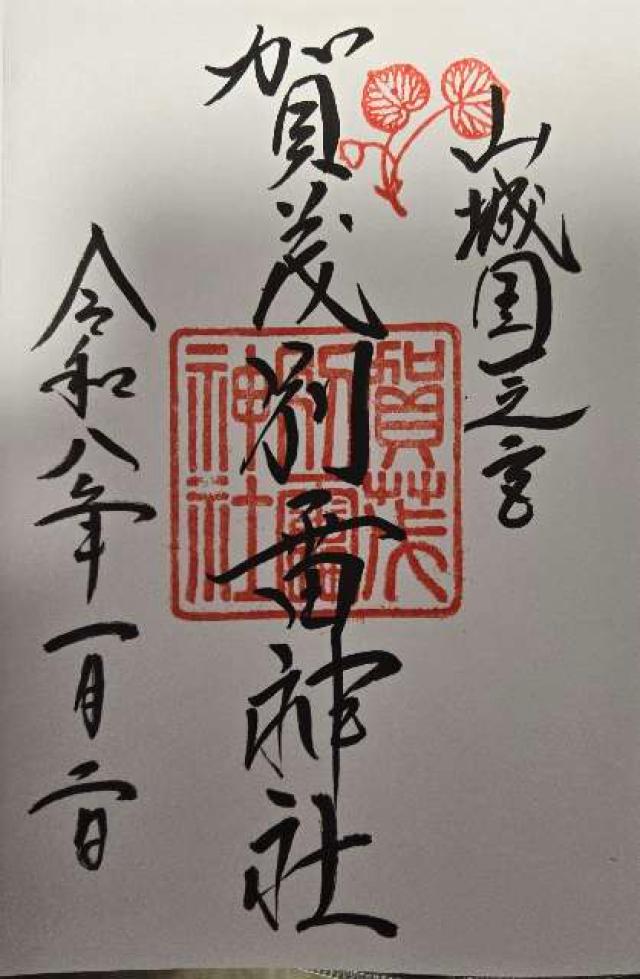 山城国一之宮
賀茂別雷神社
令和八年一月二日
賀茂
別雷
神社